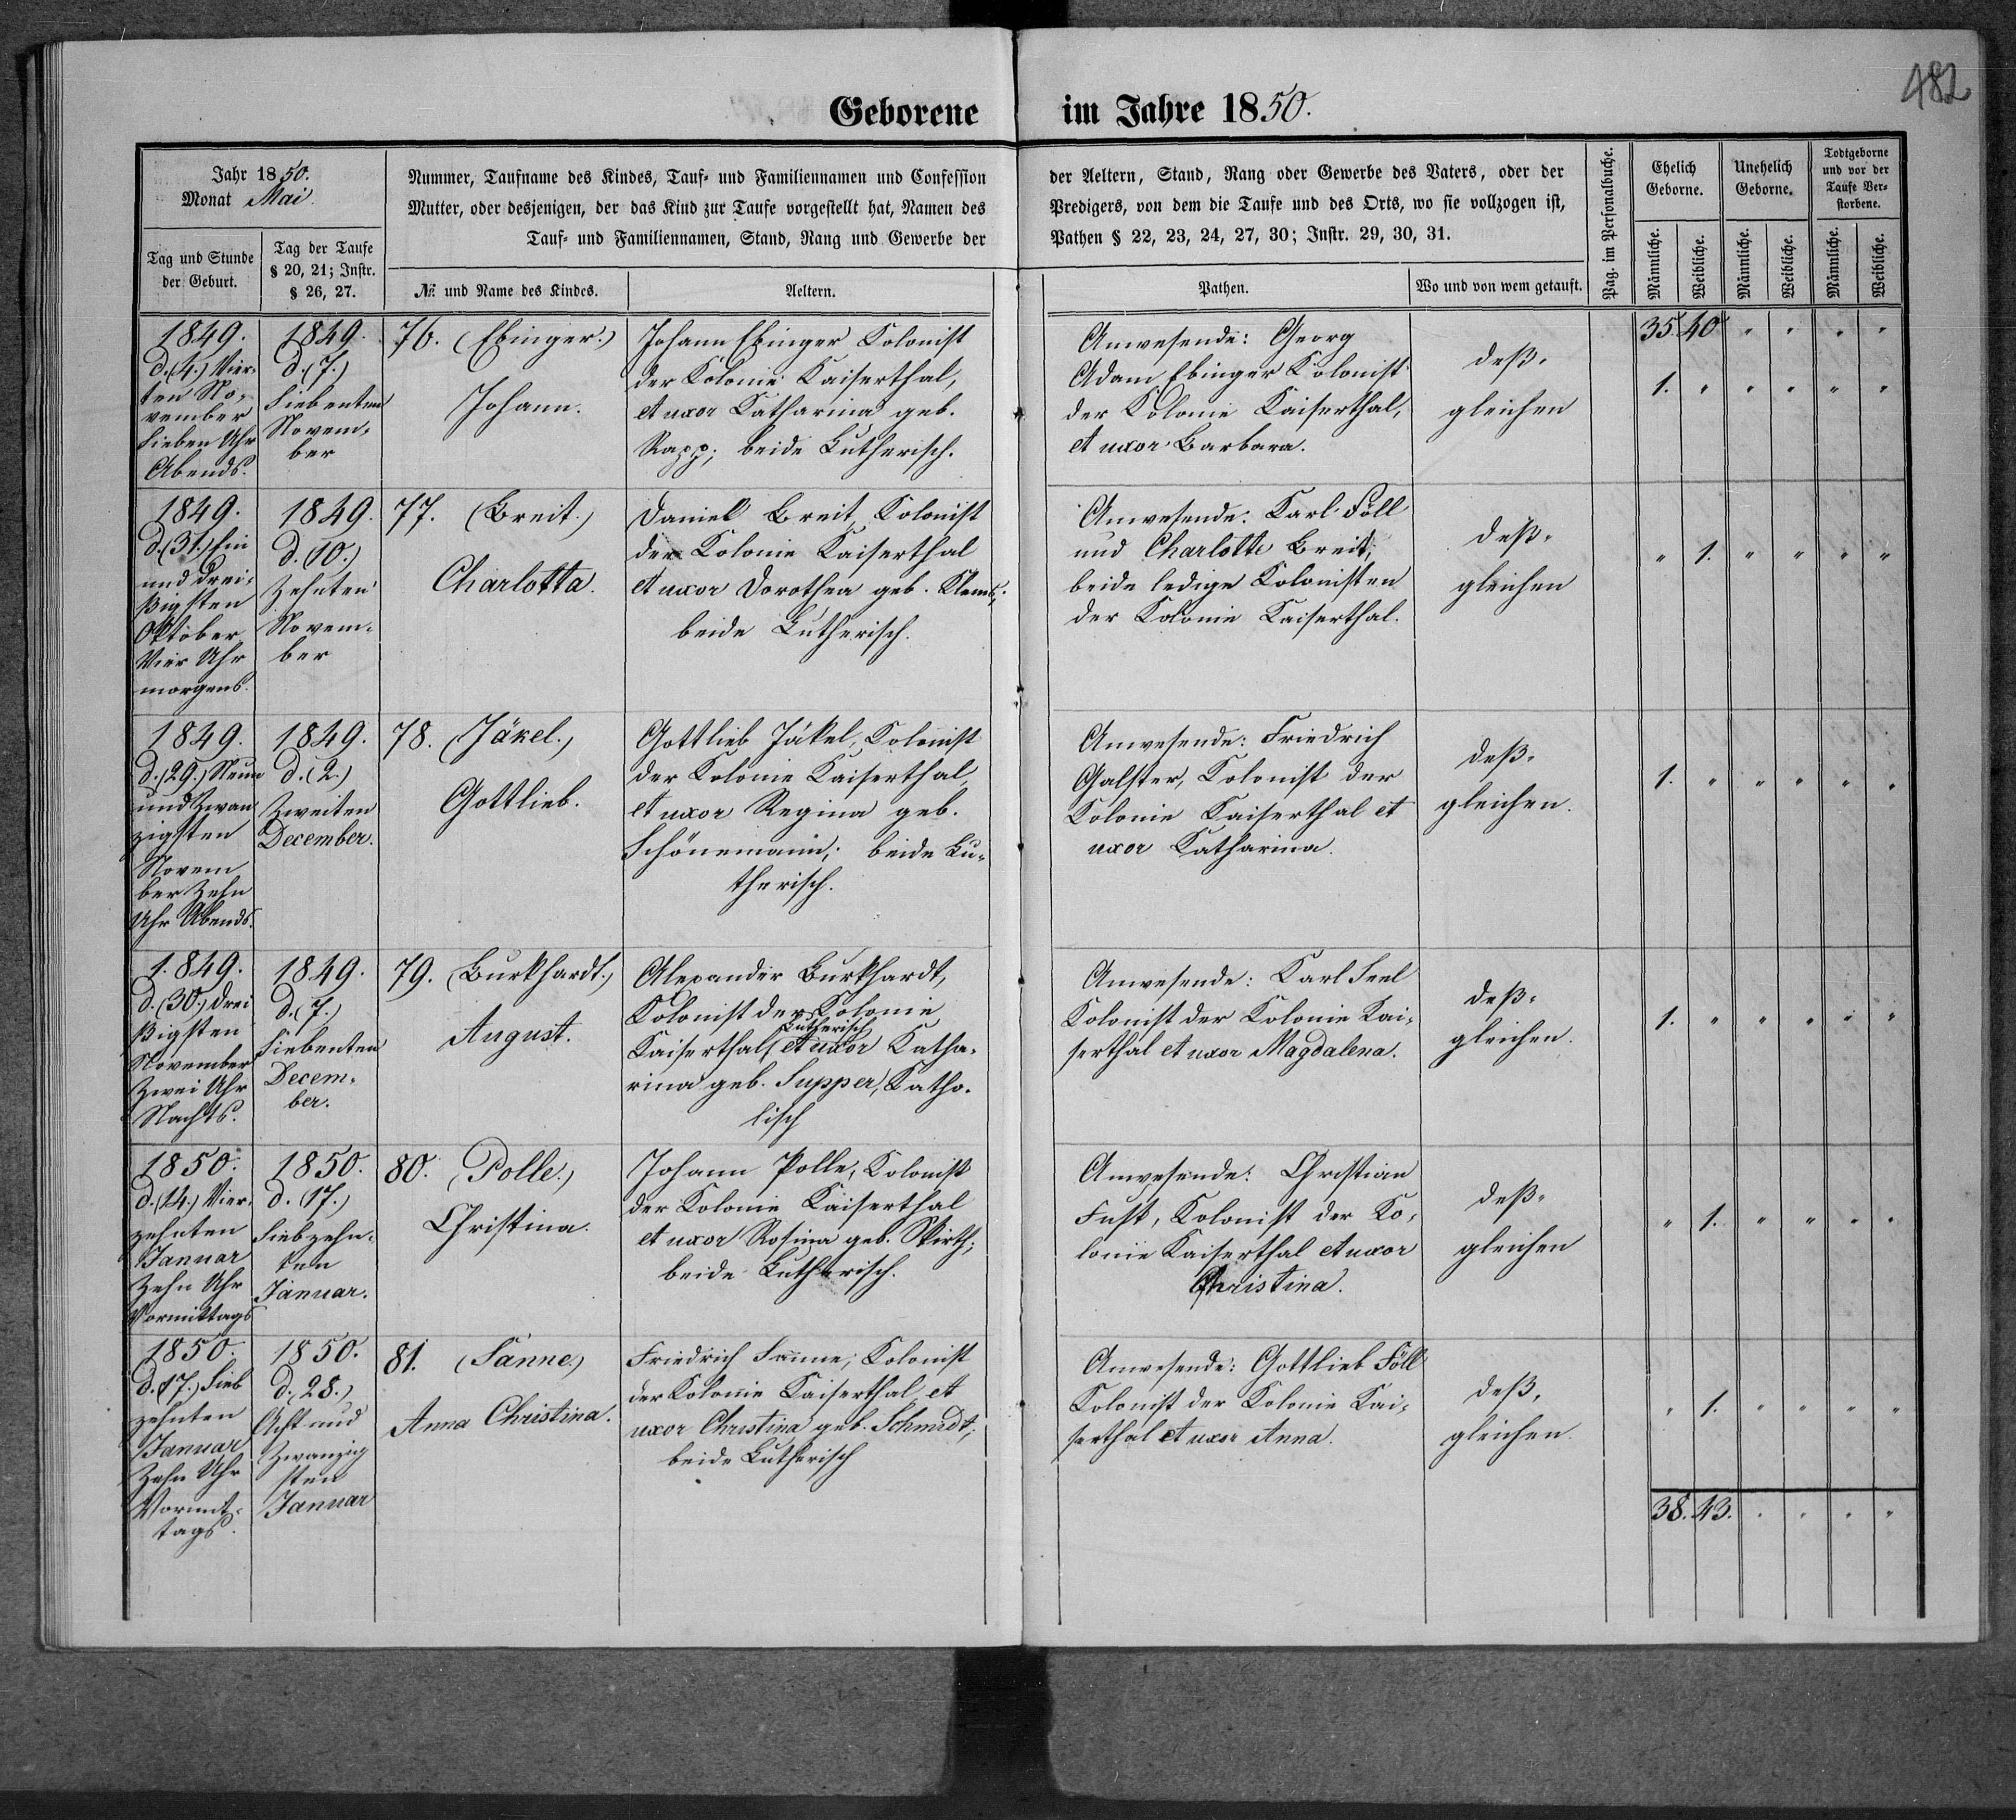 482
Geborene im Jahre 1850.
Jahr 1850.
Monat Mai.
Tag und Stunde
der Geburt.
Tag der Taufe
§ 20, 21; Instr.
§ 26, 27.
Nummer, Taufname des Kindes, Tauf- und Familiennamen und Confession
Mutter, oder desjenigen, der das Kind zur Taufe vorgestellt hat, Namen des
Tauf- und Familiennamen, Stand, Rang und Gewerbe der
№ und Name des Kindes.
Aeltern.
der Aeltern, Stand, Rang oder Gewerbe des Vaters, oder der
Predigers, von dem die Taufe und des Orts, wo sie vollzogen ist,
Pathen § 22, 23, 24, 27, 30; Instr. 29, 30, 31.
Pathen.
Wo und von wem getauft.
Pag. im Personalbuche.
Ehelich
Geborne.
Unehelich
Geborne.
Todtgeborne
und vor der
Taufe Ver-
storbene.
Männliche.
Weibliche.
Männliche.
Weibliche.
Männliche.
Weibliche.
1849.
d. (4.) Vier-
ten No-
vember
Sieben Uhr
Abends.
1849.
d. (7.)
Siebenten
Novem-
ber
76. (Ebinger.)
Johann.
Johann Ebinger Kolonist
der Kolonie Kaiserthal,
et uxor Katharina geb.
Rapp; beide Lutherisch.
Anwesende: Georg
Adam Ebinger Kolonist
der Kolonie Kaiserthal,
et uxor Barbara.
deß-
gleichen
35. 40 " " " "
1. " " " " "
1849.
d. (31.) Ein
und drei-
ßigsten
Oktober
Vier Uhr
morgens.
1849.
d. (10.)
Zehnten
Novem-
ber
77. (Breit.)
Charlotta.
Daniel Breit, Kolonist
der Kolonie Kaiserthal
et uxor Dorothea geb. Klems;
beide Lutherisch.
Anwesende: Karl Föll
und Charlotte Breit,
beide ledige Kolonisten
der Kolonie Kaiserthal.
deß-
gleichen
" 1. " " " "
1849.
d. (29.) Neun
und Zwan
zigsten
Novem
ber Zehn
Uhr Abends.
1849.
d. (2.)
Zweiten
December.
78. (Jäkel.)
Gottlieb.
Gottlieb Jäkel, Kolonist
der Kolonie Kaiserthal,
et uxor Regina geb.
Schönemann; beide Lu-
therisch.
Anwesende: Friedrich
Galster, Kolonist der
Kolonie Kaiserthal et
uxor Katharina.
deß-
gleichen.
1. " " " " "
1849.
d. (30.) drei
ßigsten
November
Zwei Uhr
Nachts.
1849.
d. (7.)
Siebenten
Decem-
ber.
79. (Burkhardt.)
August.
Alexander Burkhardt,
Kolonist der Kolonie
Lutherisch
Kaiserthal, et uxor Katha-
rina geb. Supper, Katho-
lisch
Anwesende: Karl Seel
Kolonist der Kolonie Kai-
serthal et uxor Magdalena.
deß-
gleichen.
1. " " " " "
1850.
d. (14.) Vier-
zehnten
Januar
Zehn Uhr
Vormittags
1850.
d. (17.)
Siebzehn-
ten
Januar.
80. (Polle.)
Christina.
Johann Polle, Kolonist
der Kolonie Kaiserthal
et uxor Rosina geb. Skirth;
beide Lutherisch.
Anwesende: Christian
Fust, Kolonist der Ko-
lonie Kaiserthal et uxor
Christina.
deß-
gleichen
" 1. " " " "
1850.
d. (17.) Sieb
zehnten
Januar
Zehn Uhr
Vormit-
tags.
1850.
d. (28.)
Acht und
Zwanzig
sten
Januar
81. (Sanne.)
Anna Christina.
Friedrich Sanne, Kolonist
der Kolonie Kaiserthal et
uxor Christina geb. Schmidt;
beide Lutherisch
Anwesende: Gottlieb Föll
Kolonist der Kolonie Kai-
serthal et uxor Anna.
deß-
gleichen.
" 1. " " " "
38. 43. " " " "